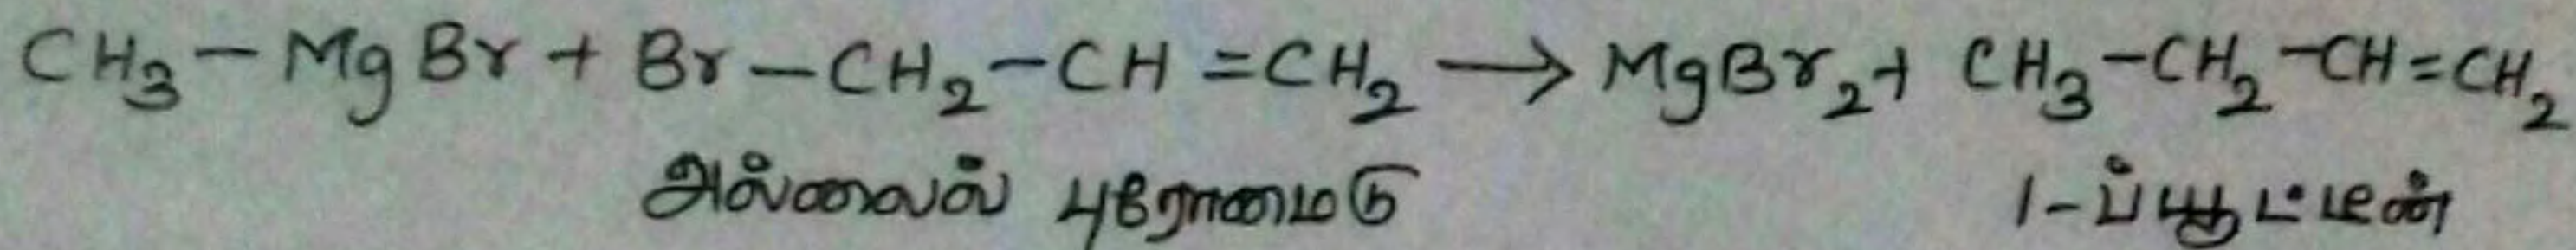 CH₃-MgBr + Br-CH₂-CH=CH₂ → MgBr₂ + CH₃-CH₂-CH=CH₂
அல்லைல் புரோமைடு 1-ப்யூட்டீன்